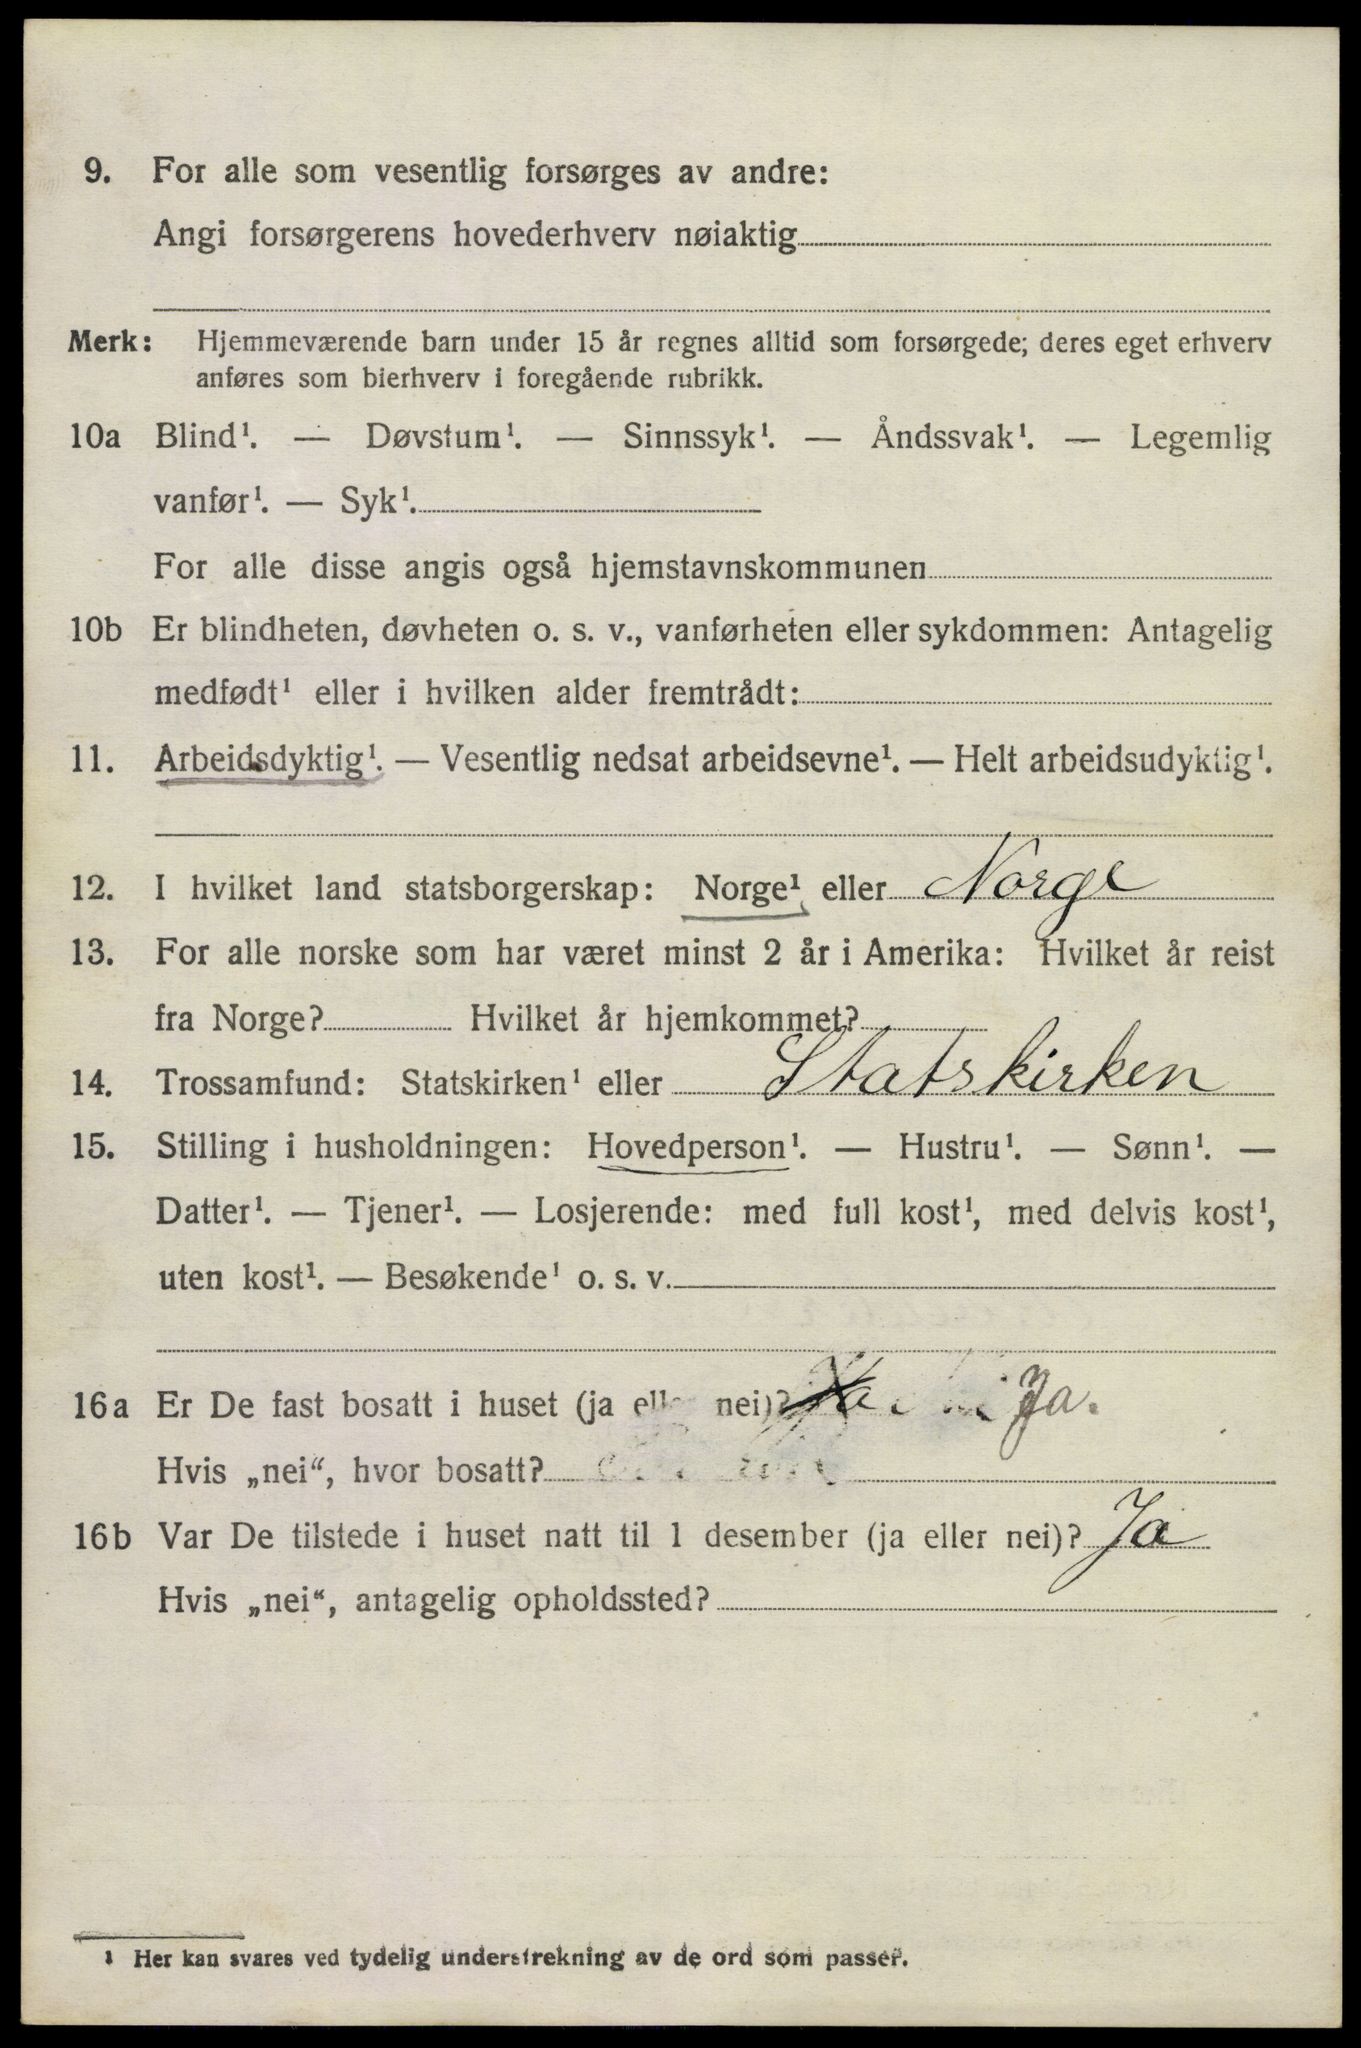 9. For alle som vesentlig forsørges av andre:
Angi forsørgerens hovederhverv nøiaktig
Merk: Hjemmeværende barn under 15 år regnes alltid som forsørgede; deres eget erhverv
anføres som bierhverv i foregående rubrikk.
10a Blind¹. — Døvstum¹. — Sinnssyk¹. — Åndssvak¹. — Legemlig
vanfør¹. — Syk¹.
For alle disse angis også hjemstavnskommunen
10b Er blindheten, døvheten o. s. v., vanførheten eller sykdommen: Antagelig
medfødt¹ eller i hvilken alder fremtrådt:
11. Arbeidsdyktig¹. — Vesentlig nedsat arbeidsevne¹. — Helt arbeidsudyktig¹.
12. I hvilket land statsborgerskap: Norge¹ eller Norge
13. For alle norske som har været minst 2 år i Amerika: Hvilket år reist
fra Norge? Hvilket år hjemkommet?
14. Trossamfund: Statskirken¹ eller Statskirken
15. Stilling i husholdningen: Hovedperson¹. — Hustru¹. — Sønn¹. —
Datter¹. — Tjener¹. — Losjerende: med full kost¹, med delvis kost¹,
uten kost¹. — Besøkende¹ o. s. v.
16a Er De fast bosatt i huset (ja eller nei)? Ja.
Hvis „nei“, hvor bosatt?
16b Var De tilstede i huset natt til 1 desember (ja eller nei)? Ja
Hvis „nei“, antagelig opholdssted?
¹ Her kan svares ved tydelig understrekning av de ord som passer.